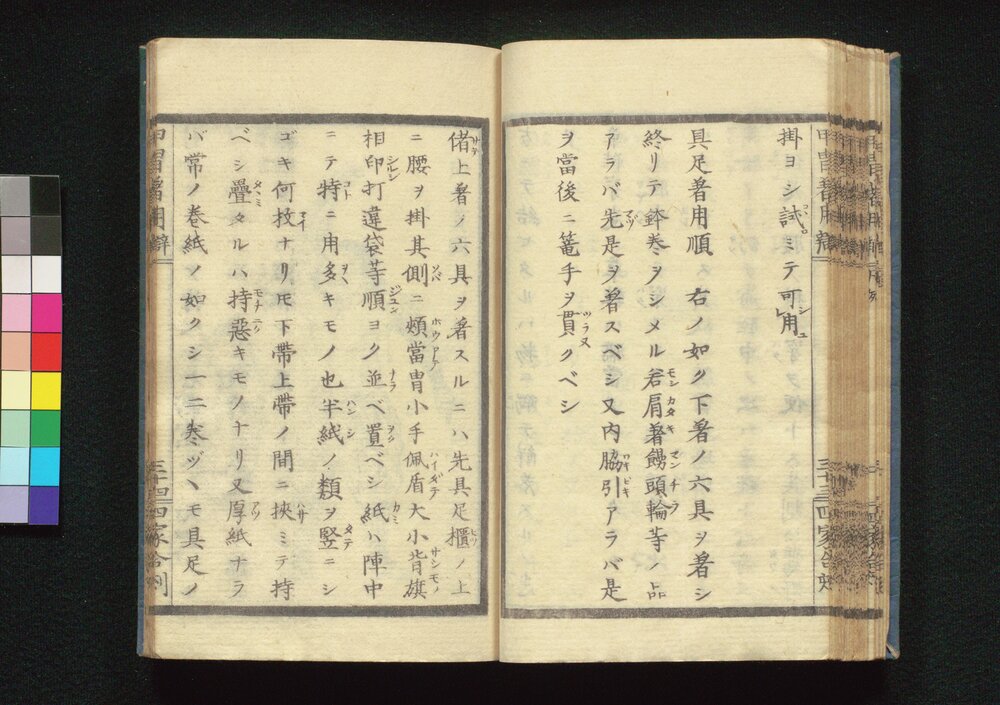 掛ヨシ試ミテ可用
具足著用順 右ノ如ク下著ノ六具ヲ著シ
終リテ鉢巻ヲシメル若肩著饅頭輪等ノ品
アラバ先是ヲ著スベシ又内脇引アラバ是
ヲ當後ニ籠手ヲ貫クベシ
偖上著ノ六具ヲ著スルニハ先具足櫃ノ上
ニ腰ヲ掛其側ニ頬當冑小手佩盾大小背旗
相印打違袋等順ヨク並ベ置ベシ紙ハ陣中
ニテ特ニ用多キモノ也半紙ノ類ヲ竪ニシ
ゴキ何枚ナリトモ下帶上帶ノ間ニ挾ミテ持
ベシ疊タルハ持惡キモノナリ又厚紙ナラ
バ常ノ巻紙ノ如クシ一二巻ヅヽモ具足ノ
甲冑著用辯
三十四 四家合刻